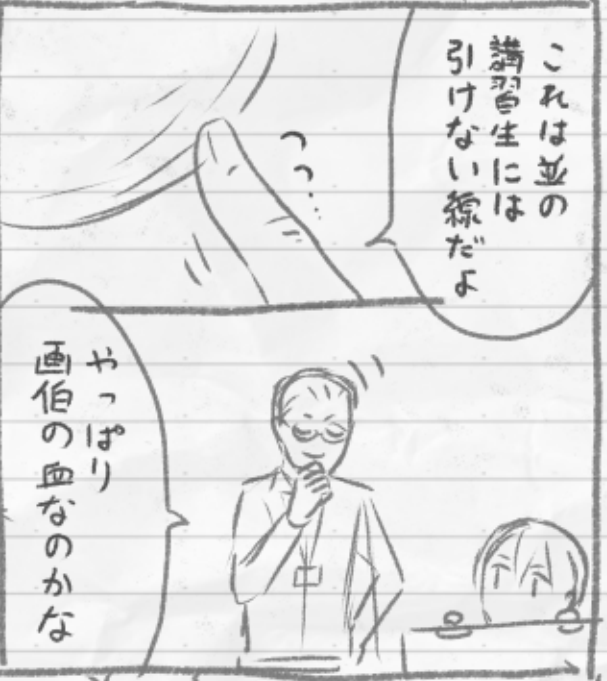 これは並の
講習生には
引けない線だよ
つつ…
やっぱり
画伯の血なのかな